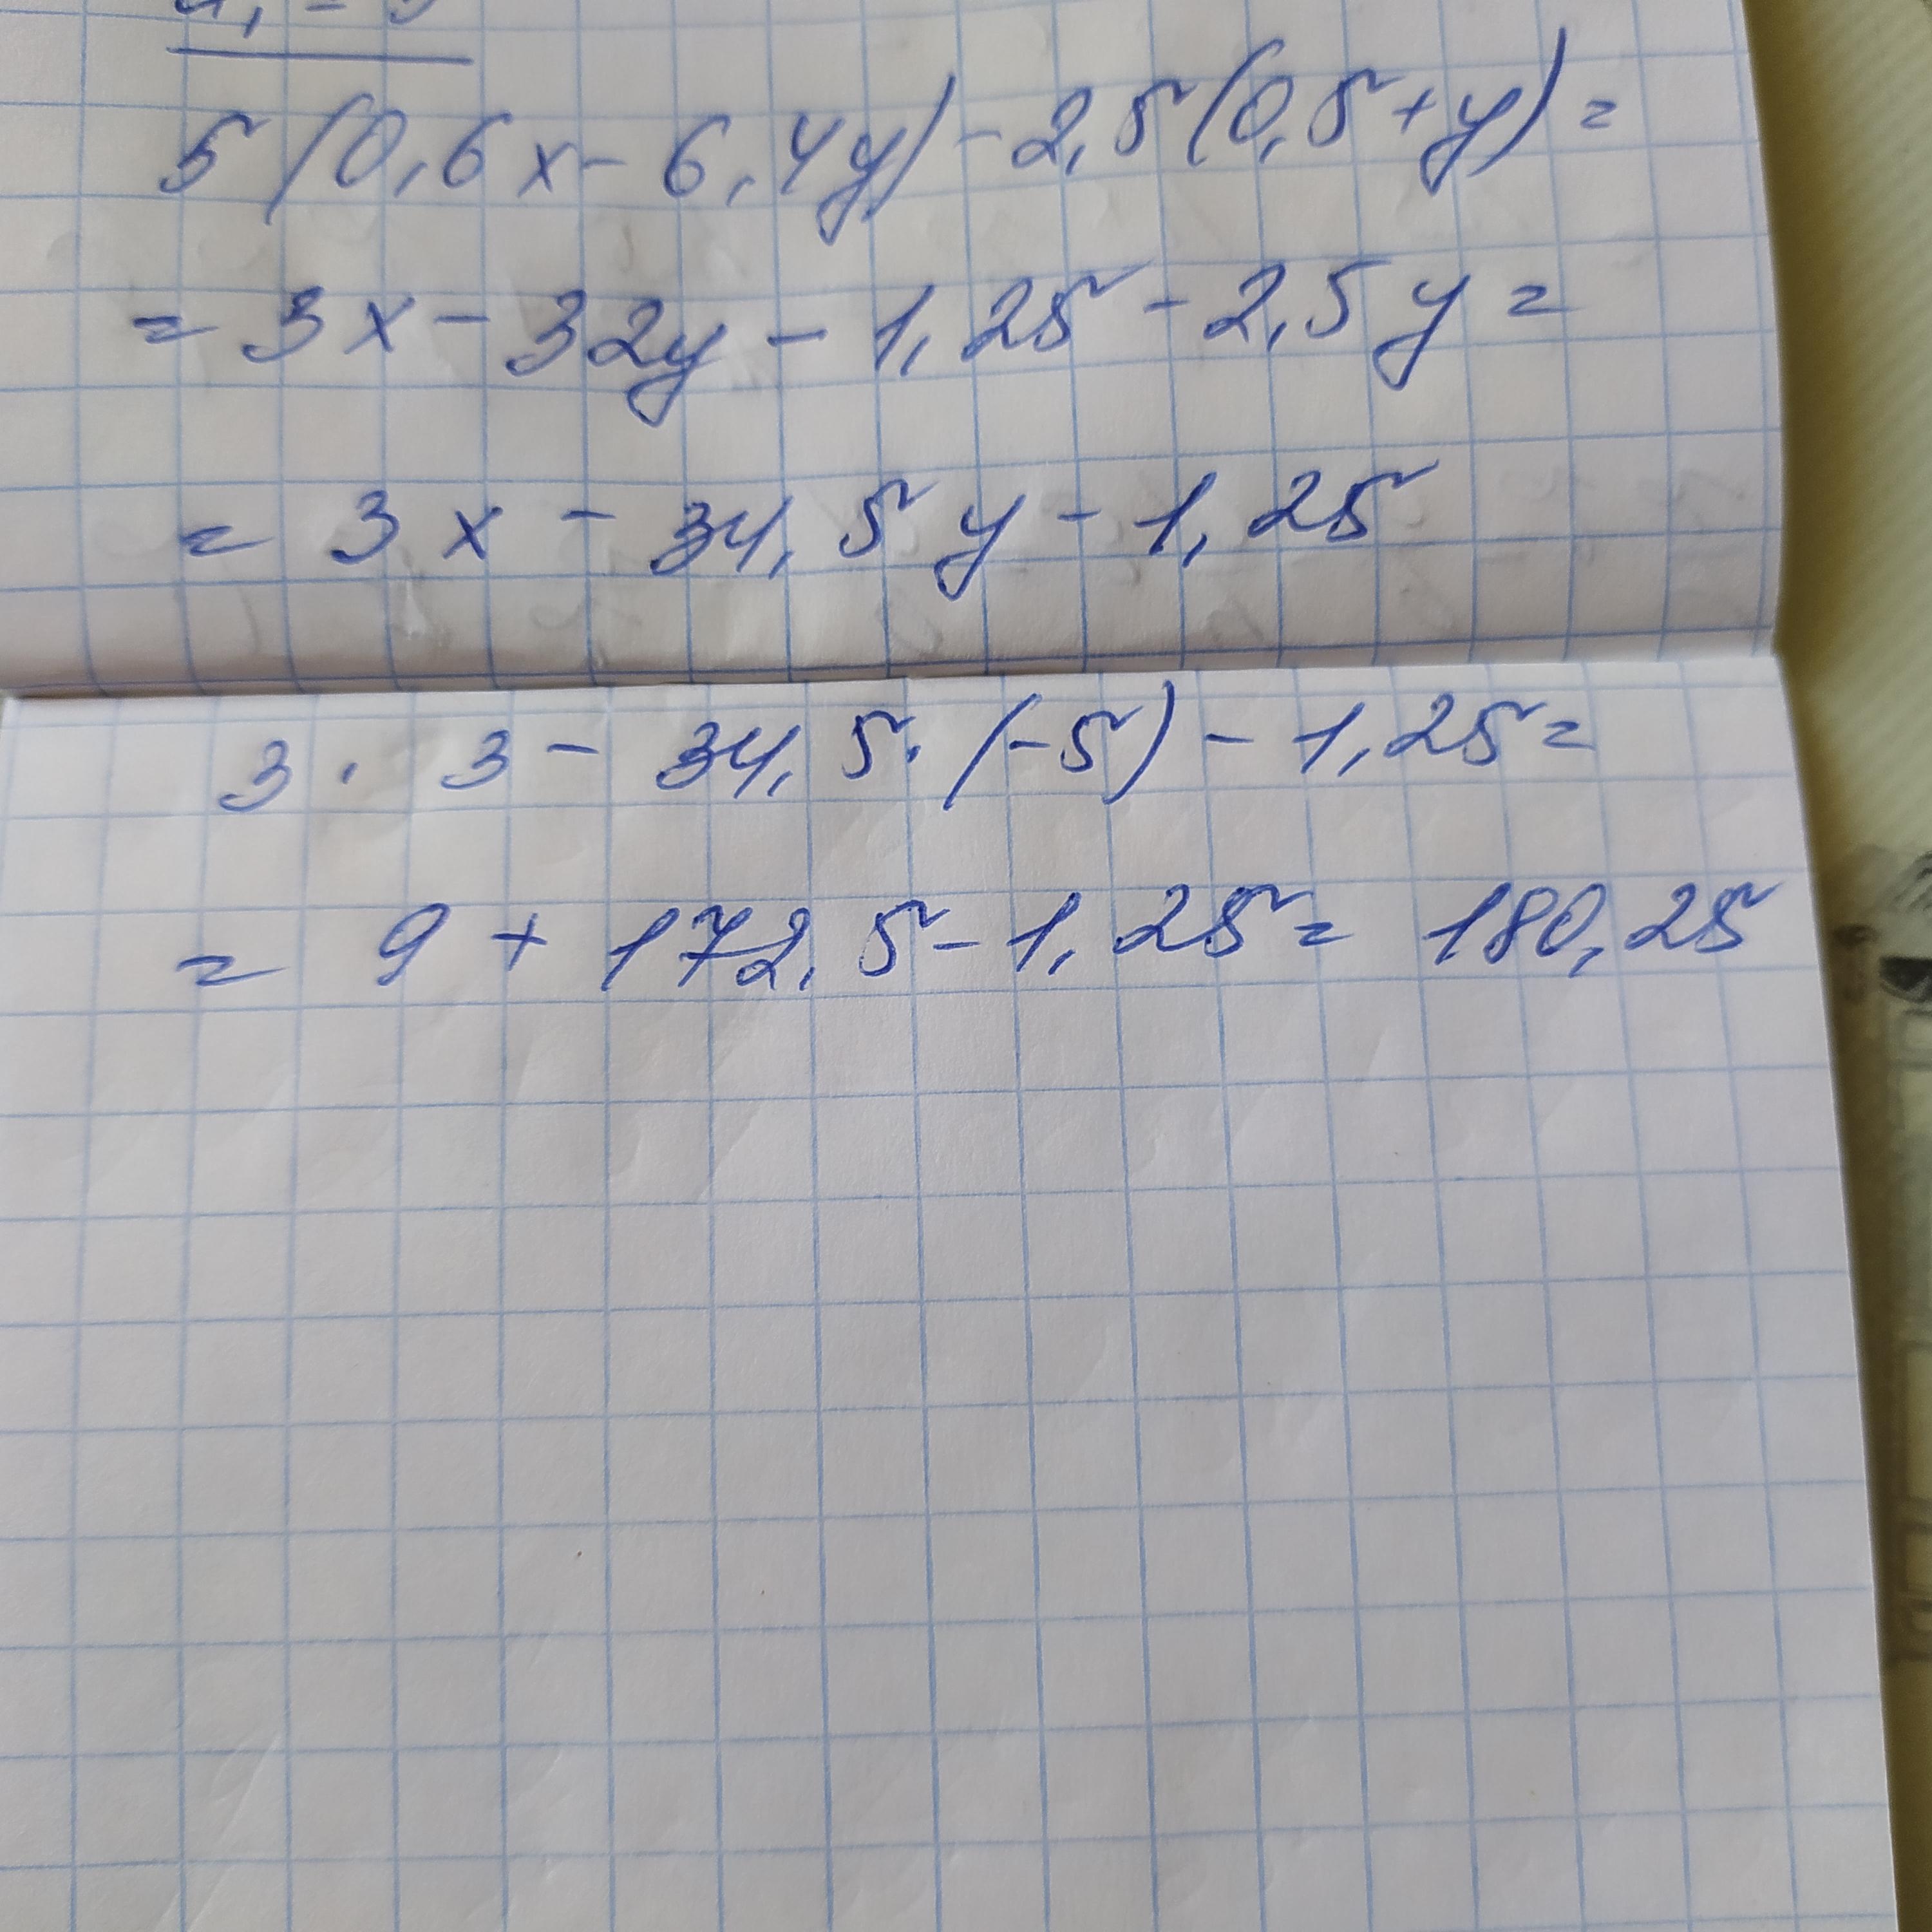 5(0,6x-6,4y)-2,5(0,5+y)=
=3x-32y-1,25-2,5y=
=3x-34,5y-1,25
3·3-34,5·(-5)-1,25=
=9+172,5-1,25=180,25